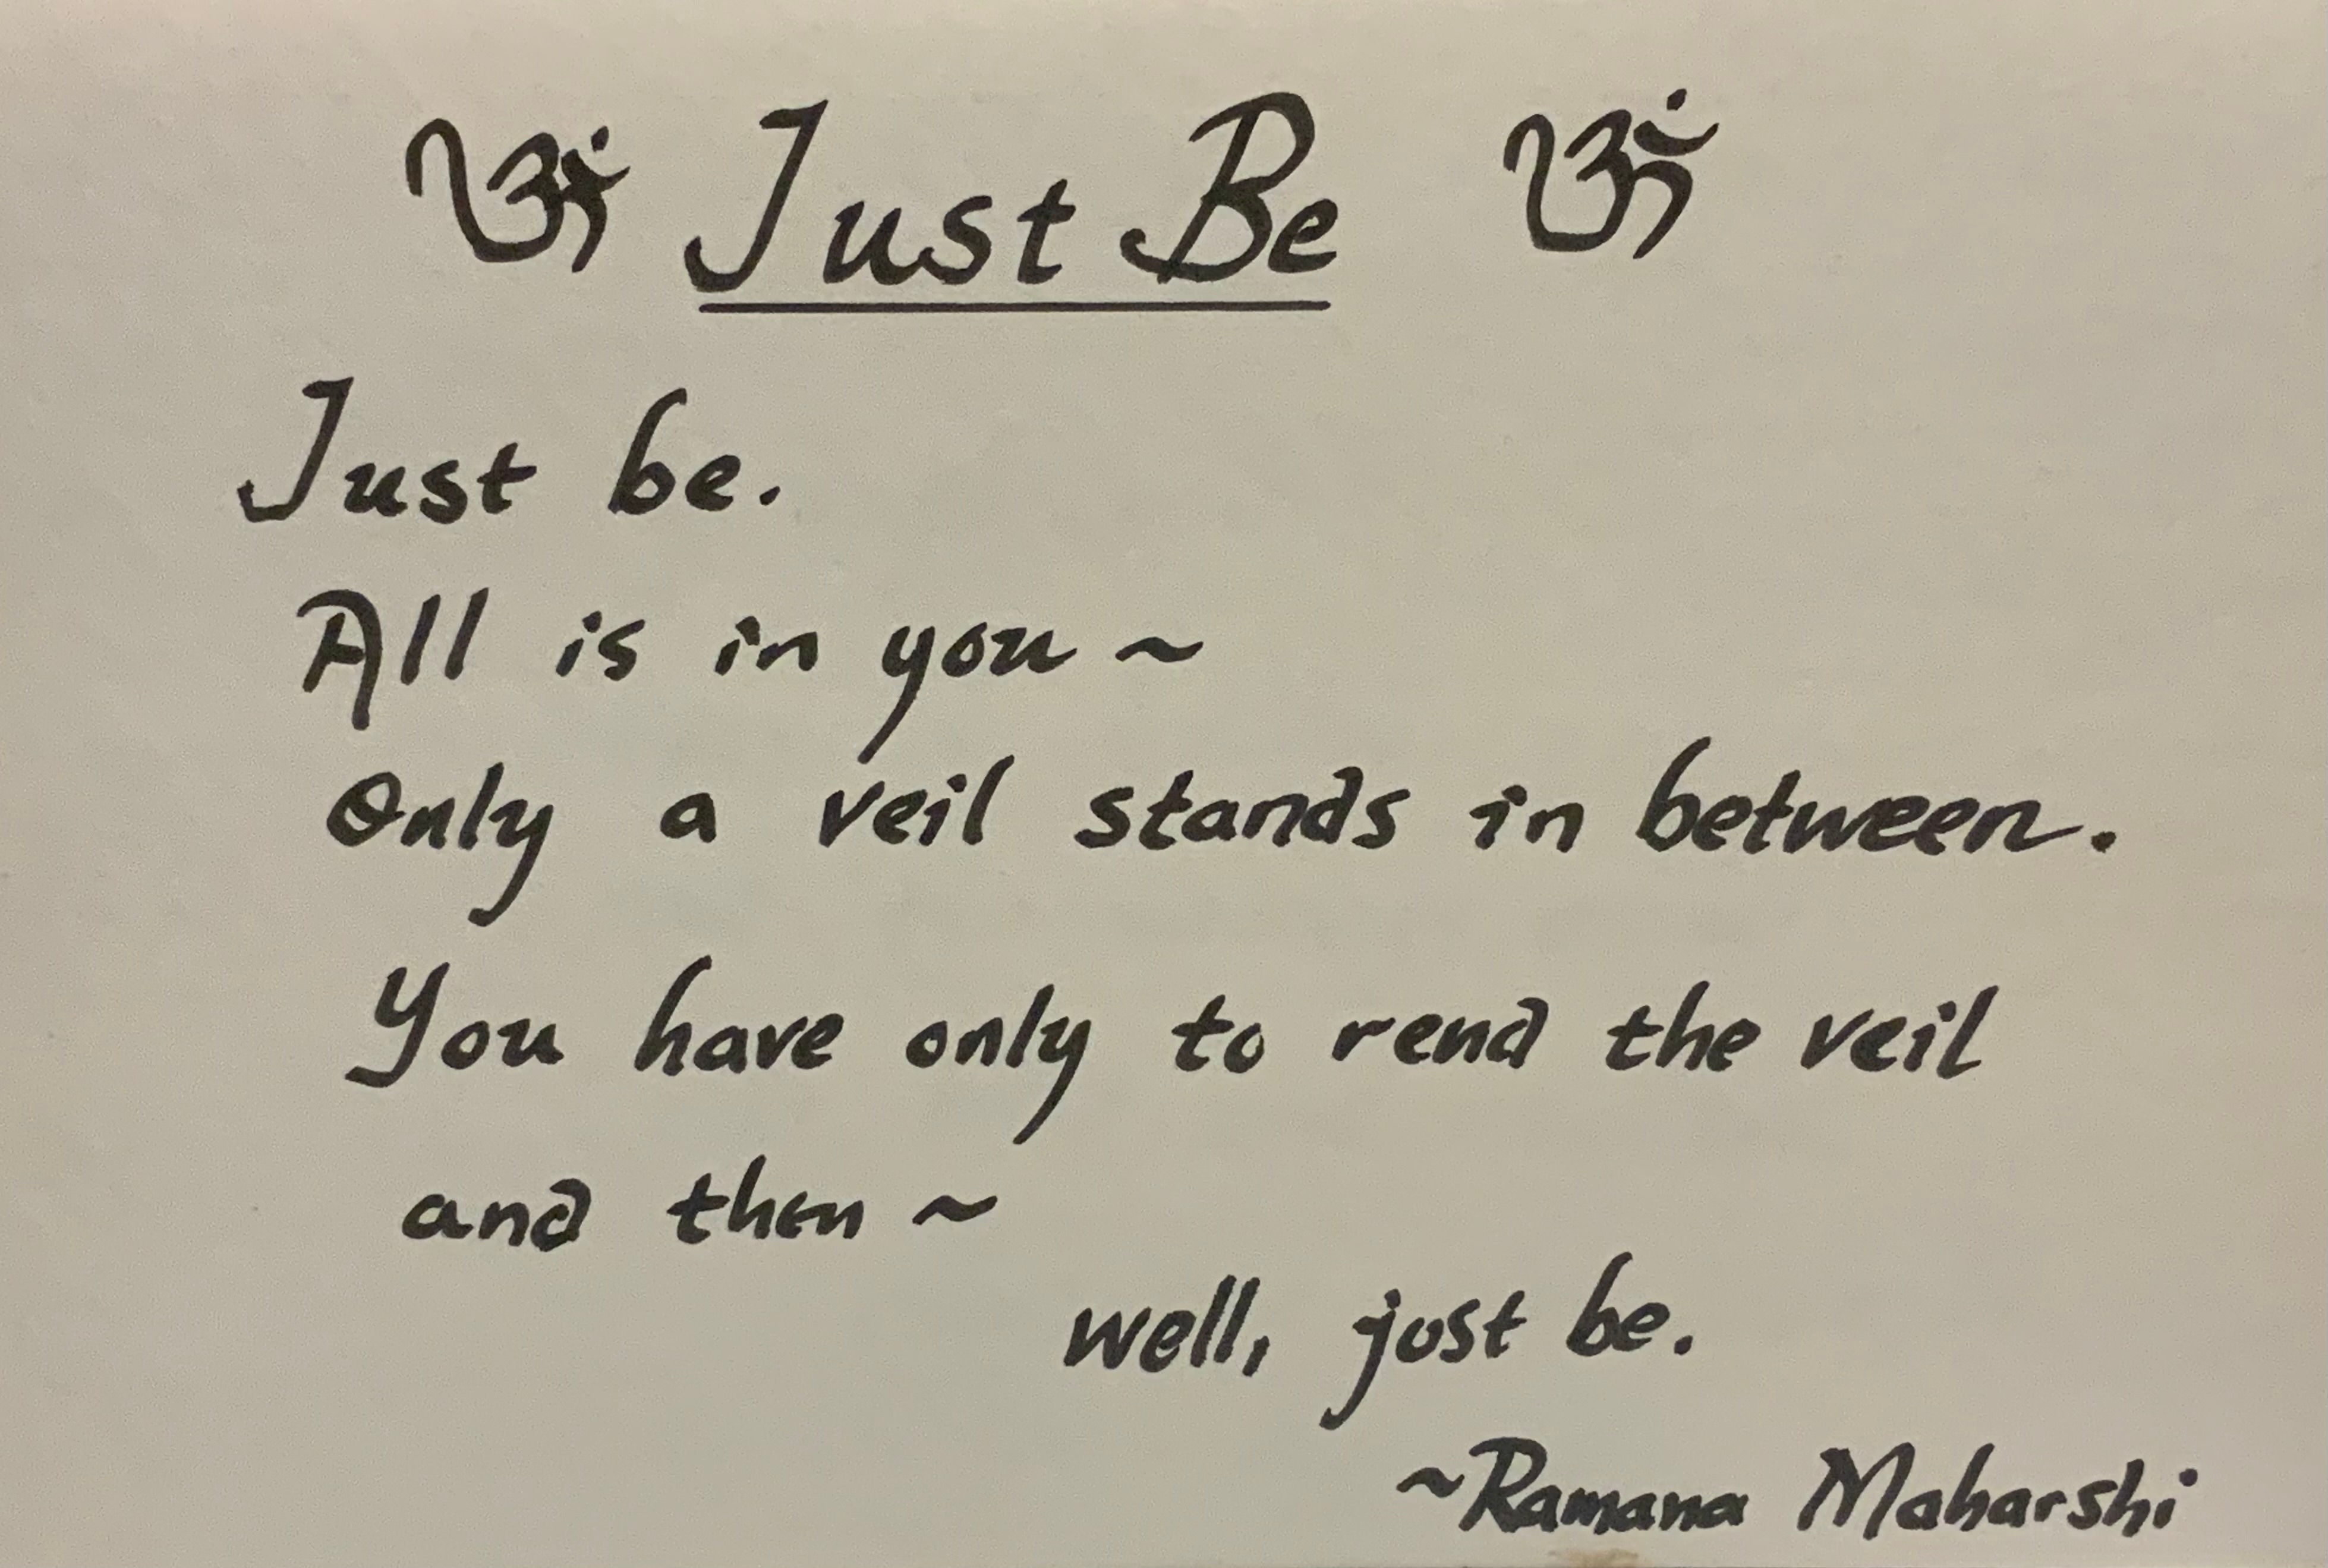 ॐ Just Be ॐ
Just be.
All is in you ~
Only a veil stands in between.
You have only to rend the veil
and then ~
well, just be.
~Ramana Maharshi